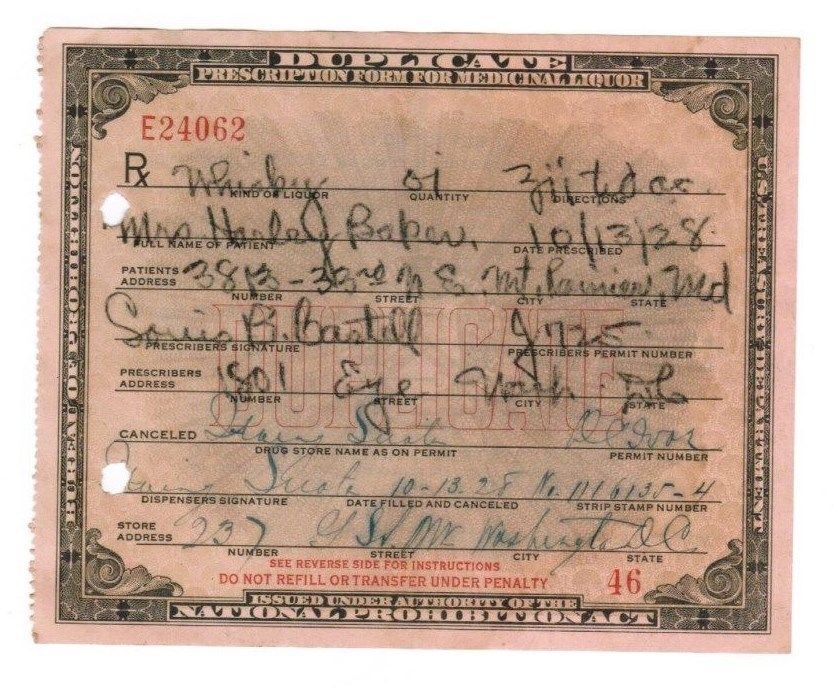 DUPLICATE
PRESCRIPTION FORM FOR MEDICINAL LIQUOR
E24062
Rx Whiskey
KIND OF LIQUOR QUANTITY DIRECTIONS
Mrs Baker. 10/13/28
FULL NAME OF PATIENT DATE PRESCRIBED
PATIENTS ADDRESS 3813 - 33rd Mt. Rainier, Md
NUMBER STREET CITY STATE
J725
PRESCRIBERS SIGNATURE PRESCRIBERS PERMIT NUMBER
PRESCRIBERS ADDRESS 1801 Eye Wash
NUMBER STREET CITY STATE
DUPLICATE
CANCELED
DRUG STORE NAME AS ON PERMIT PERMIT NUMBER
10-13-28 No. 1116135-4
DISPENSERS SIGNATURE DATE FILLED AND CANCELED STRIP STAMP NUMBER
STORE ADDRESS 237 Washington D.C.
NUMBER STREET CITY STATE
SEE REVERSE SIDE FOR INSTRUCTIONS
DO NOT REFILL OR TRANSFER UNDER PENALTY 46
ISSUED UNDER AUTHORITY OF THE
NATIONAL PROHIBITION ACT
BUREAU OF PROHIBITION
U.S. TREASURY DEPARTMENT